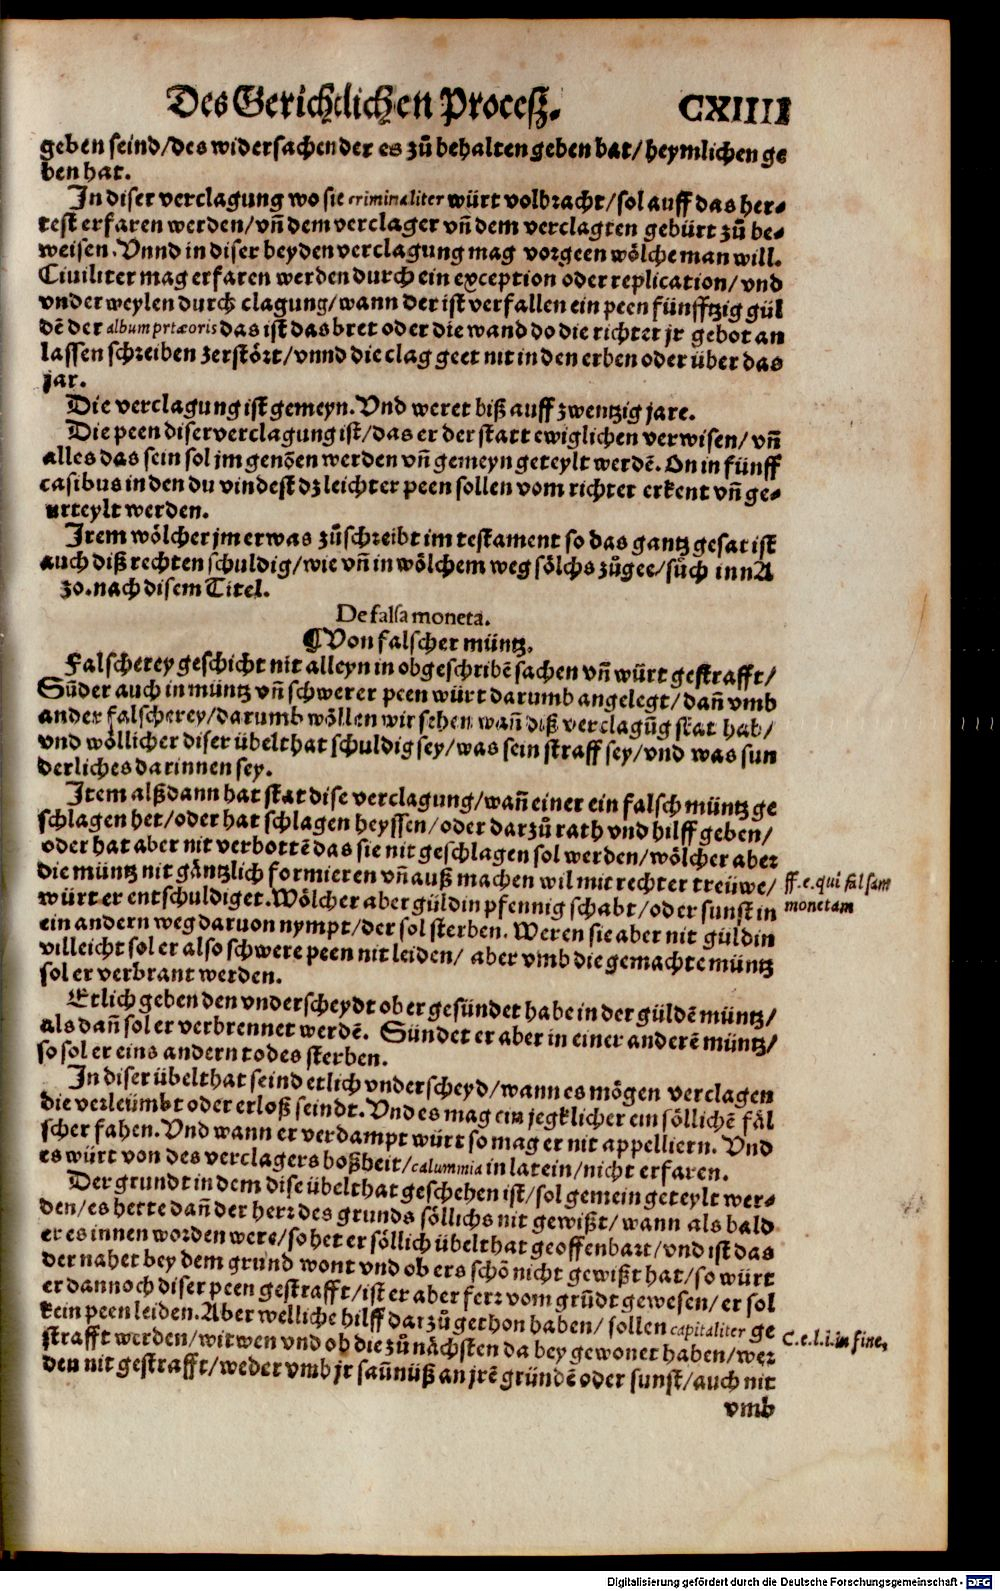 Des Gerichtlichen Procesz. CXIIII
geben seind/des widersachen der es zů behalten geben hat/heymlichen ge
ben hat.
In diser verclagung wo sie criminaliter würt volbracht/sol auff das her-
test erfaren werden/vñ dem verclager vñ dem verclagten gebürt zů be-
weisen. Vnnd in diser beyden verclagung mag vorgeen wölche man will.
Ciuiliter mag erfaren werden durch ein exception oder replication/vnd
vnder weylen durch clagung/wann der ist verfallen ein peen fünfftzig gül
dē der album prtæoris das ist das bret oder die wand do die richter jr gebot an
lassen schreiben zerstört/vnnd die clag geet nit in den erben oder über das
jar.
Die verclagung ist gemeyn. Vnd weret biß auff zwentzig jare.
Die peen diser verclagung ist/das er der statt ewiglichen verwisen/vñ
alles das sein sol jm genōen werden vñ gemeyn geteylt werdē. On in fünff
casibus in den du vindest dz leichter peen sollen vom richter erkent vñ ge-
urteylt werden.
Item wölcher jm etwas zůschreibt im testament so das gantz gesat ist
auch diß rechten schuldig/wie vñ in wölchem weg sölchs zůgee/sůch inn A
zo. nach disem Titel.
De falsa moneta.
¶ Von falscher müntz.
Falscherey geschicht nit alleyn in obgeschribē sachen vñ würt gestrafft/
Sũder auch in müntz vñ schwerer peen würt darumb angelegt/dañ vmb
ander falscherey/darumb wöllen wir sehen wañ diß verclagũg stat hab/
vnd wöllicher diser übelthat schuldig sey/was sein straff sey/vnd was sun
derliches darinnen sey.
Item alßdann hat stat dise verclagung/wañ einer ein falsch müntz ge
schlagen het/oder hat schlagen heyssen/oder darzů rath vnd hilff geben/
oder hat aber nit verbottē das sie nit geschlagen sol werden/wölcher aber
die müntz nit gäntzlich formieren vñ auß machen wil mit rechter treüwe/
würt er entschuldiget. Wölcher aber güldin pfennig schabt/oder sunst in
ein andern weg daruon nympt/der sol sterben. Weren sie aber nit güldin
villeicht sol er also schwere peen nit leiden/ aber vmb die gemachte müntz
sol er verbrant werden.
ff. e. qui falsam
monetam
Etlich geben den vnderscheydt ob er gesündet habe in der güldē müntz/
als dañ sol er verbrennet werdē. Sündet er aber in einer anderē müntz/
so sol er eins andern todes sterben.
In diser übelthat seind etlich vnderscheyd/wann es mögen verclagen
die verleümbt oder erloß seindt. Vnd es mag ein jegklicher ein söllichē fäl
scher fahen. Vnd wann er verdampt würt so mag er nit appelliern. Vnd
es würt von des verclagers boßheit/calummia in latein/nicht erfaren.
Der grundt in dem dise übelthat geschehen ist/sol gemein geteylt wer-
den/es hette dañ der herr des grunds söllichs nit gewißt/wann als bald
er es innen worden were/so het er söllich übelthat geoffenbart/vnd ist das
der nahet bey dem grund wont vnd ob ers schō nicht gewißt hat/so würt
er dannoch diser peen gestrafft/ist er aber ferr vom grũdt gewesen/er sol
kein peen leiden. Aber welliche hilff darzů gethon haben/ sollen capitaliter ge
strafft werden/witwen vnd ob die zů nächsten da bey gewonet haben/wer
den nit gestrafft/weder vmb jr saũnüß an jrē gründē oder sunst/auch nit
C. e. l. i. in fine,
vmb
Digitalisierung gefördert durch die Deutsche Forschungsgemeinschaft - DFG